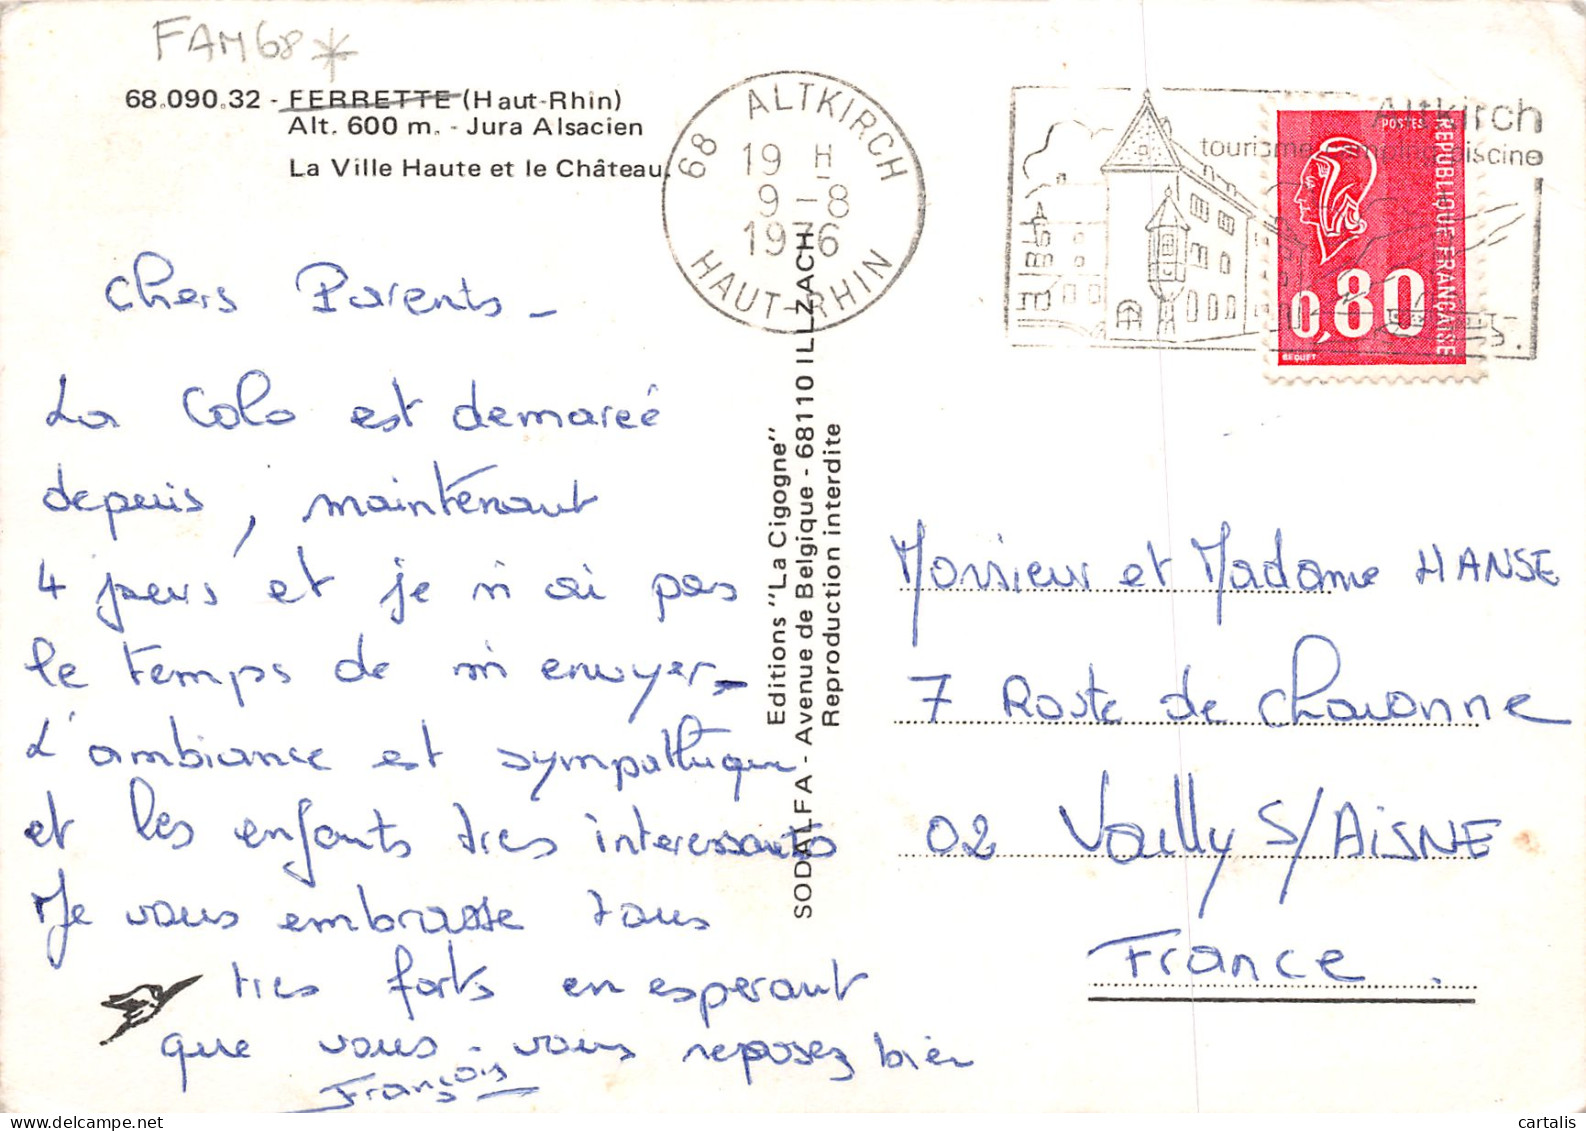 FAM68*
68.090.32 - FERRETTE (Haut-Rhin)
Alt. 600 m. - Jura Alsacien
La Ville Haute et le Château.
68 ALTKIRCH
19 H
9 - 8
1976
HAUT-RHIN
Altkirch
tourisme camping piscine
POSTES
REPUBLIQUE FRANÇAISE
0,80
BEQUET
Chers Parents -
La Colo est demareé
depuis, maintenant
4 jours et je n'ai pas
le temps de m'envuyer -
L'ambiance est sympathique
et les enfants tres interessants
Je vous embrasse tous
tres forts en esperant
que vous - vous reposez bien
François
Editions "La Cigogne"
SODALFA - Avenue de Belgique - 68110 ILLZACH
Reproduction interdite
Monsieur et Madame HANSE
7 Route de Chavonne
02 Vailly S/AiSNE
France.
cartalis